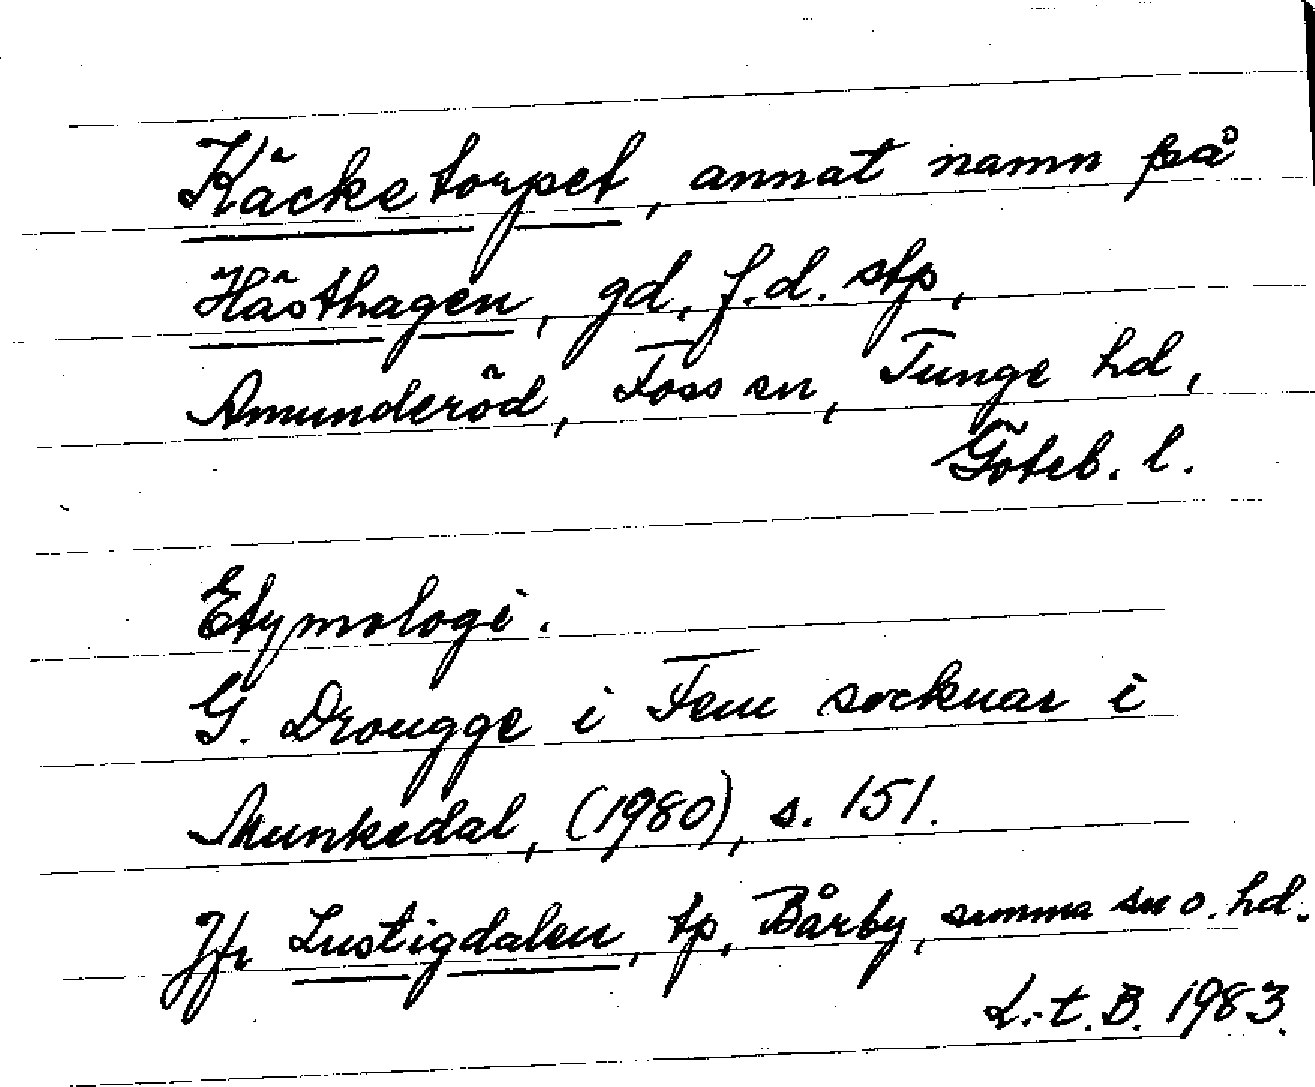 Käcketorpet, annat namn på
Hästhagen, gd, f.d. stp,
Amunderöd, Foss sn, Tunge hd,
Göteb. l.
Etymologi.
G. Drougge i Fem socknar i
Munkedal, (1980), s. 151.
Jfr Lustigdalen, tp, Bårby, samma sn o. hd.
L.t.B. 1983.